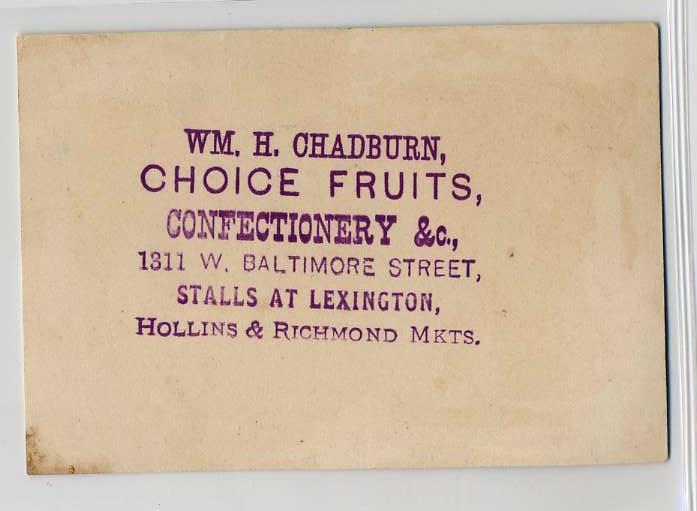 WM. H. CHADBURN,
CHOICE FRUITS,
CONFECTIONERY &c.,
1311 W. BALTIMORE STREET,
STALLS AT LEXINGTON,
HOLLINS & RICHMOND MKTS.